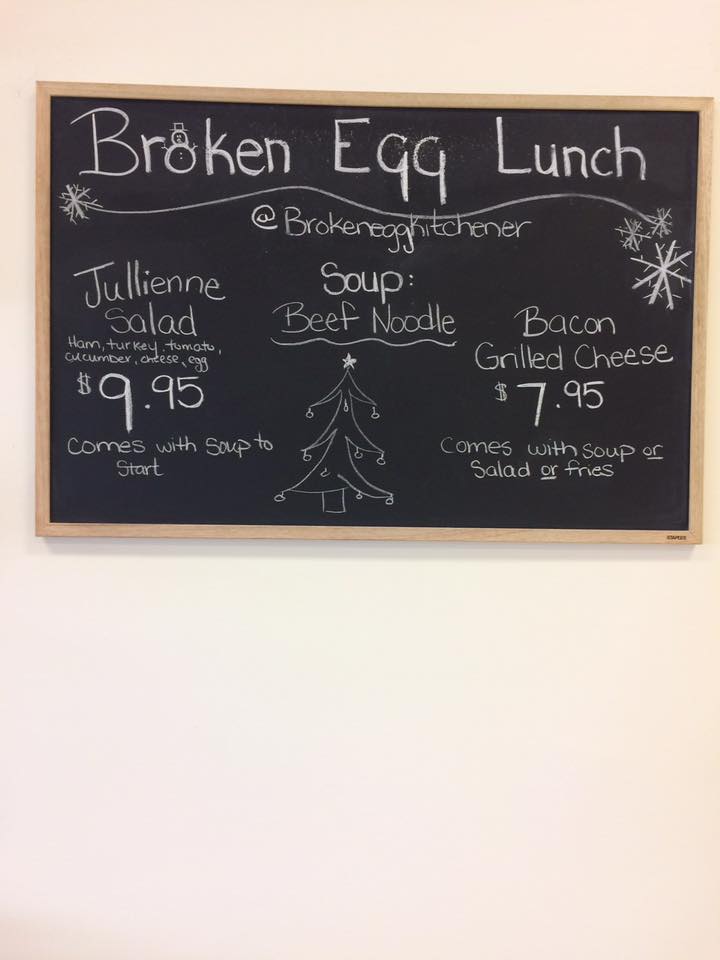 Broken Egg Lunch
@Brokeneggkitchener
Jullienne
Salad
Ham, turkey, tomato,
cucumber, cheese, egg
$9.95
Comes with Soup to
Start
Soup:
Beef Noodle
Bacon
Grilled Cheese
$7.95
Comes with soup or
Salad or fries
STAPLES